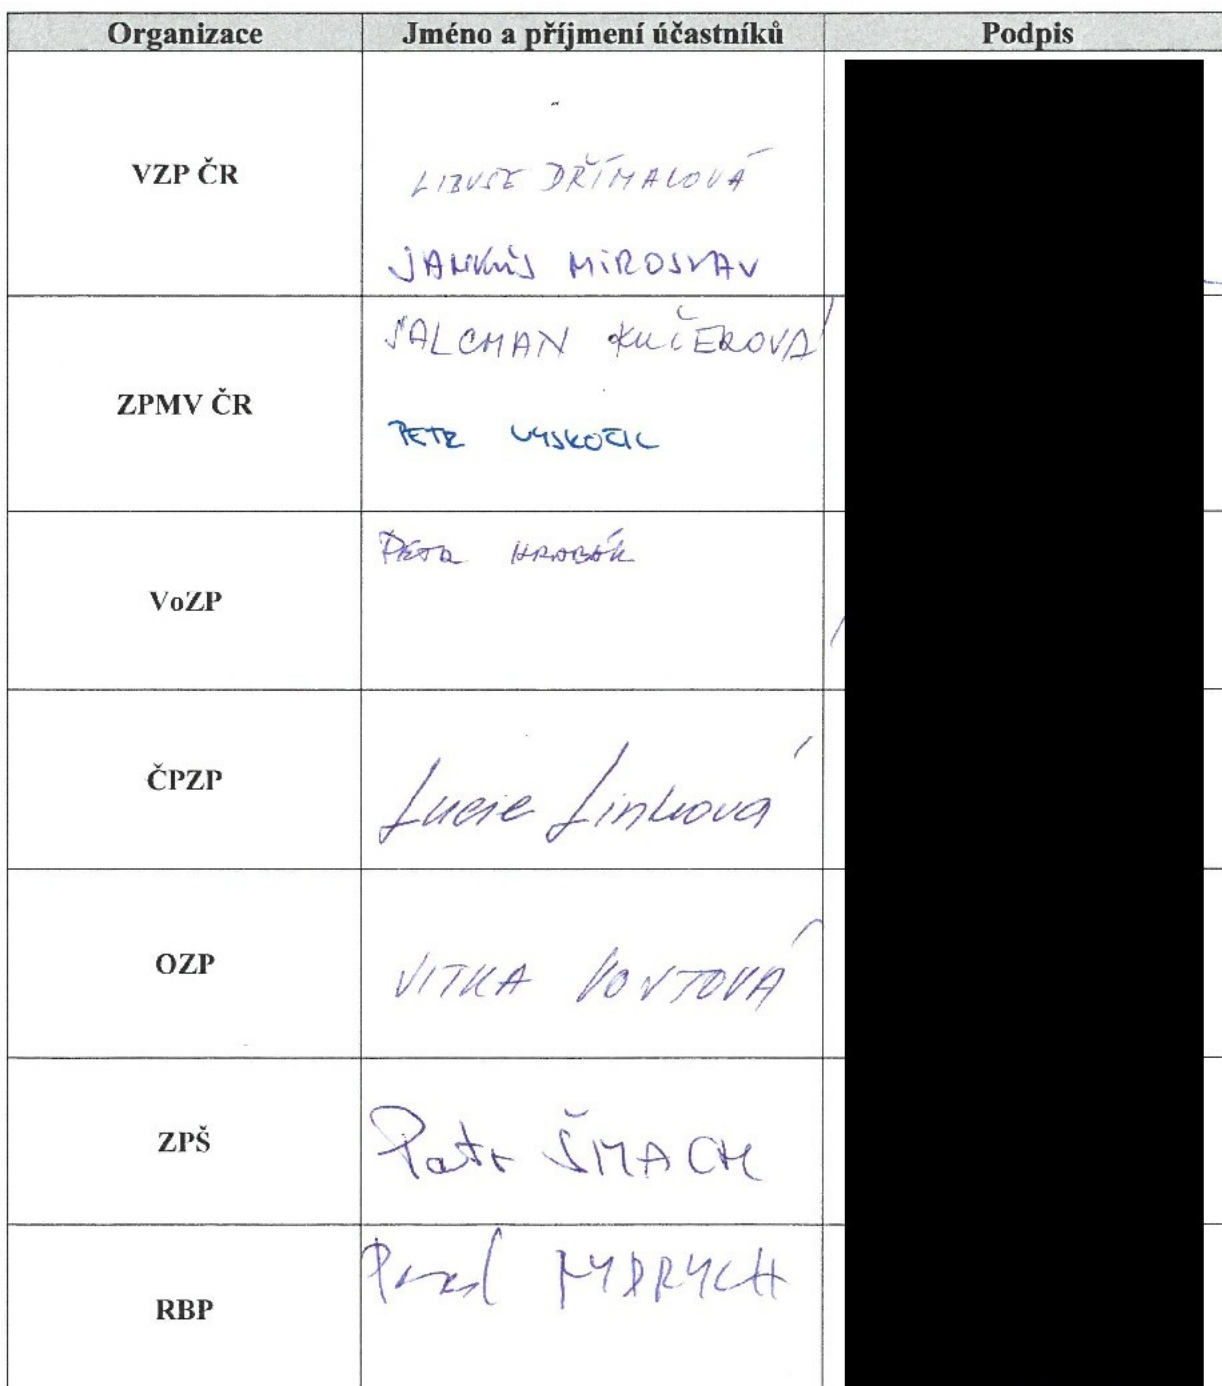 Organizace Jméno a příjmení účastníků Podpis
VZP ČR
LIBUSE DŘÍMALOVÁ
MIROSLAV
ZPMV ČR
SALCMAN KUČEROVÁ
PETR VYSKOČIL
VoZP
PETR HRABÁK
ČPZP
Lucie Linková
OZP
VITKA VOVTOVÁ
ZPŠ
Petr ŠMACH
RBP
Pavel NYDRYCH